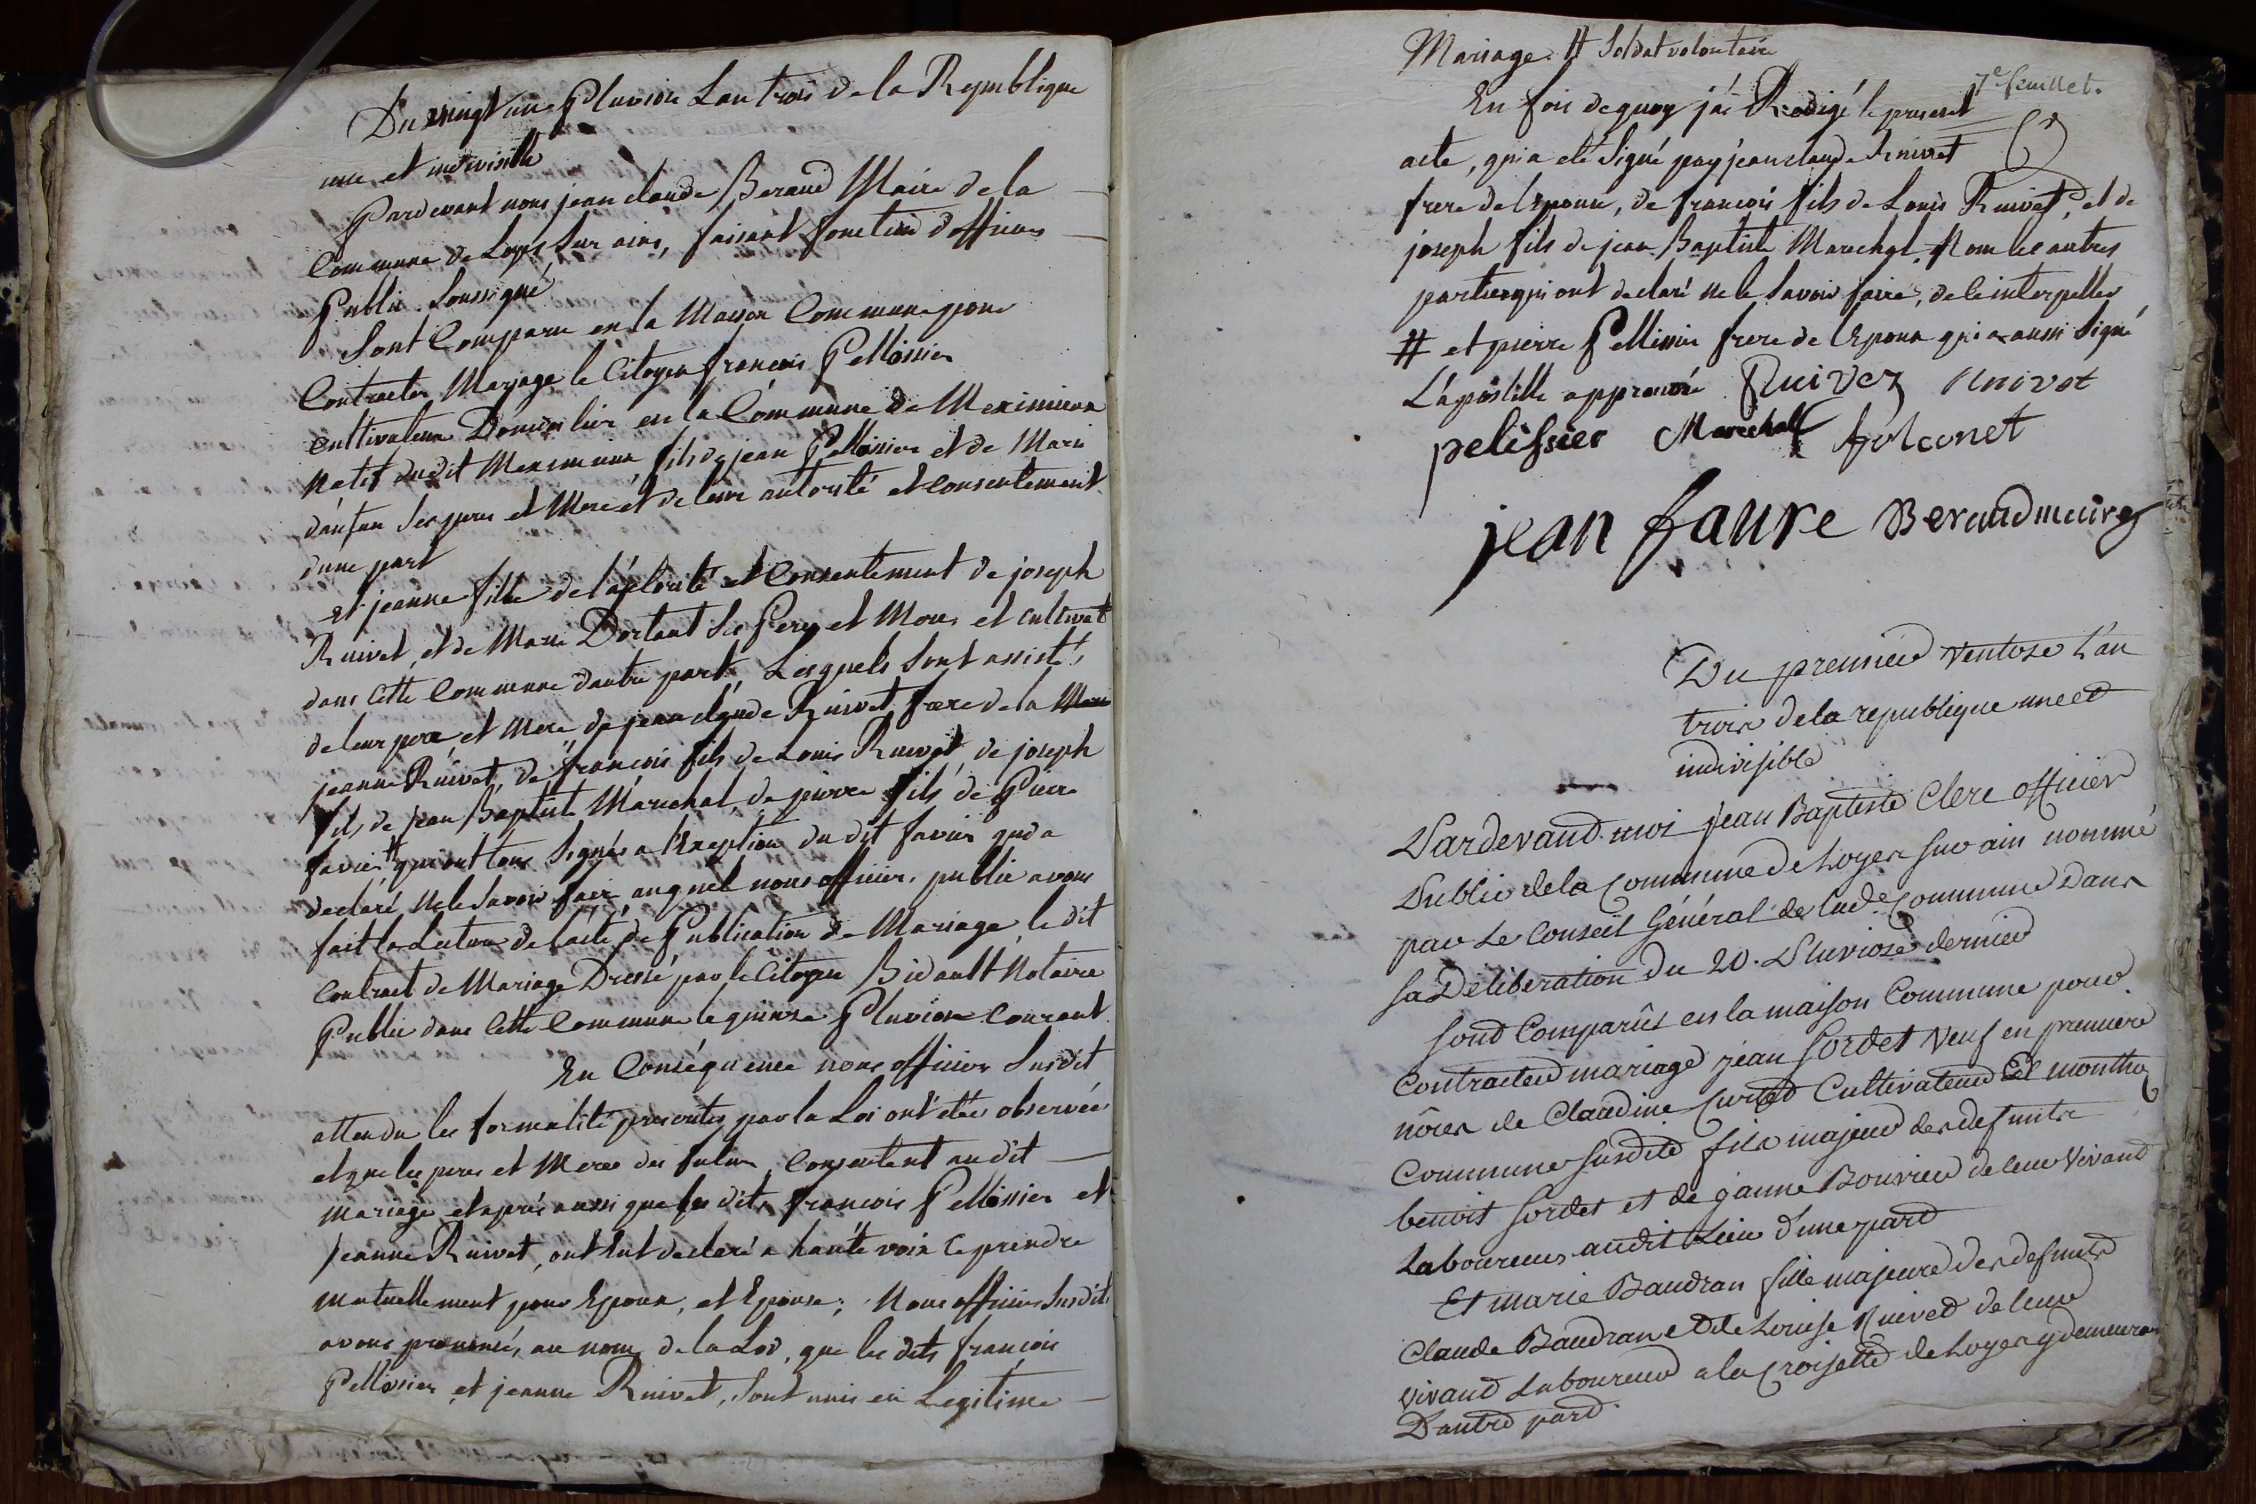 Du vingt un Pluviose Lan trois de la Republique
une et indivisible
Pardevant nous jean claude Beraud Maire de la
Commune de Loyes Sur ains, faisant fonction d'officier
Public Soussigné
Sont Comparu en la Maison Commune pour
Contracter Mariage le Citoyen francois Pellissier
cultivateur Domicilier en la Commune de Meximieux
Natif dudit Meximieux fils de jean Pellissier et de Marie
Ses peres et Mere et de leurs autorité et consentement
dune part
et jeanne fille de et Consentement de joseph
Ruivet, et de Marie Dortant Ses Pere et Mere et cultivat
dans cette Commune dautre part, Lesquels Sont assisté
de leur pere et Mere, de jean claude Ruivet frere de la
jeanne Ruivet, de francois fils de Louis Ruivet, de joseph
fils de jean Baptiste Marechal, de pierre fils de Pierre
favier # qui ont tous Signés a l'Exeption du dit favier qui a
declaré ne le Savoir faire auquel nous officier public avons
fait la Lecture de l'acte de Publication de Mariage, le dit
Contract de Mariage Dressé par le Citoyen Bidault Notaire
Public dans Cette Commune le quinze Pluviose Courant
En Conséquence nous officier Susdit
attendu les formalité prescrites par la Loi ont étées observées
et que les peres et Meres des futurs, Consentent audit
Mariage et aprés aussi que les dits francois Pellissier et
jeanne Ruivet, ont tut declaré a haute voix Ce prendre
Mutuellement pour Epoux, et Epouse; Nous officier Susdit
avons prononcés, au nom de la Loi, que les dits francois
Pellissier et jeanne Ruivet, Sont unis en Legitime
Mariage. # Soldat volontaire
7e feuillet.
En fois de quoy jai Redigé le present
acte, qui a eté Signé par jean claude Ruivet
frere de l'Epouse, de francois fils de Louis Ruivet, et de
joseph fils de jean Baptiste Marechal. Non les autres
parties qui ont declaré ne le Savoir faire, de ce interpeller
# et pierre Pellissier frere de l'Epoux qui a aussi Signé
L'apostille approuvée Ruivez Ruivet
pelissier Marechal folconet
jean faure Beraud maire
Du premier Ventose L'an
trois de la republique une et
indivisible
Pardevand moi jean Baptiste Clerc officier
Public de la Commune de Loyes sur ain nommé
par Le Conseil Général de lade Commune Dans
sa Deliberation Du 20. Pluviose dernier
sond Comparûs en la maison Commune pour
Contracter mariage jean Sordet Veuf en premiere
nôces de Claudine Curtet Cultivateur monthoz
Commune susdite fils majeur des defunts
benoit Sordet et de janne Bouvier de leur Vivand
Laboureurs audit Lieu d'une part
Et marie Baudran fille majeure des defunts
Claude Baudran et de Louise Ruived de leur
vivand Laboureur a la Croisette de Loyes y demeuran
D'autre pard.